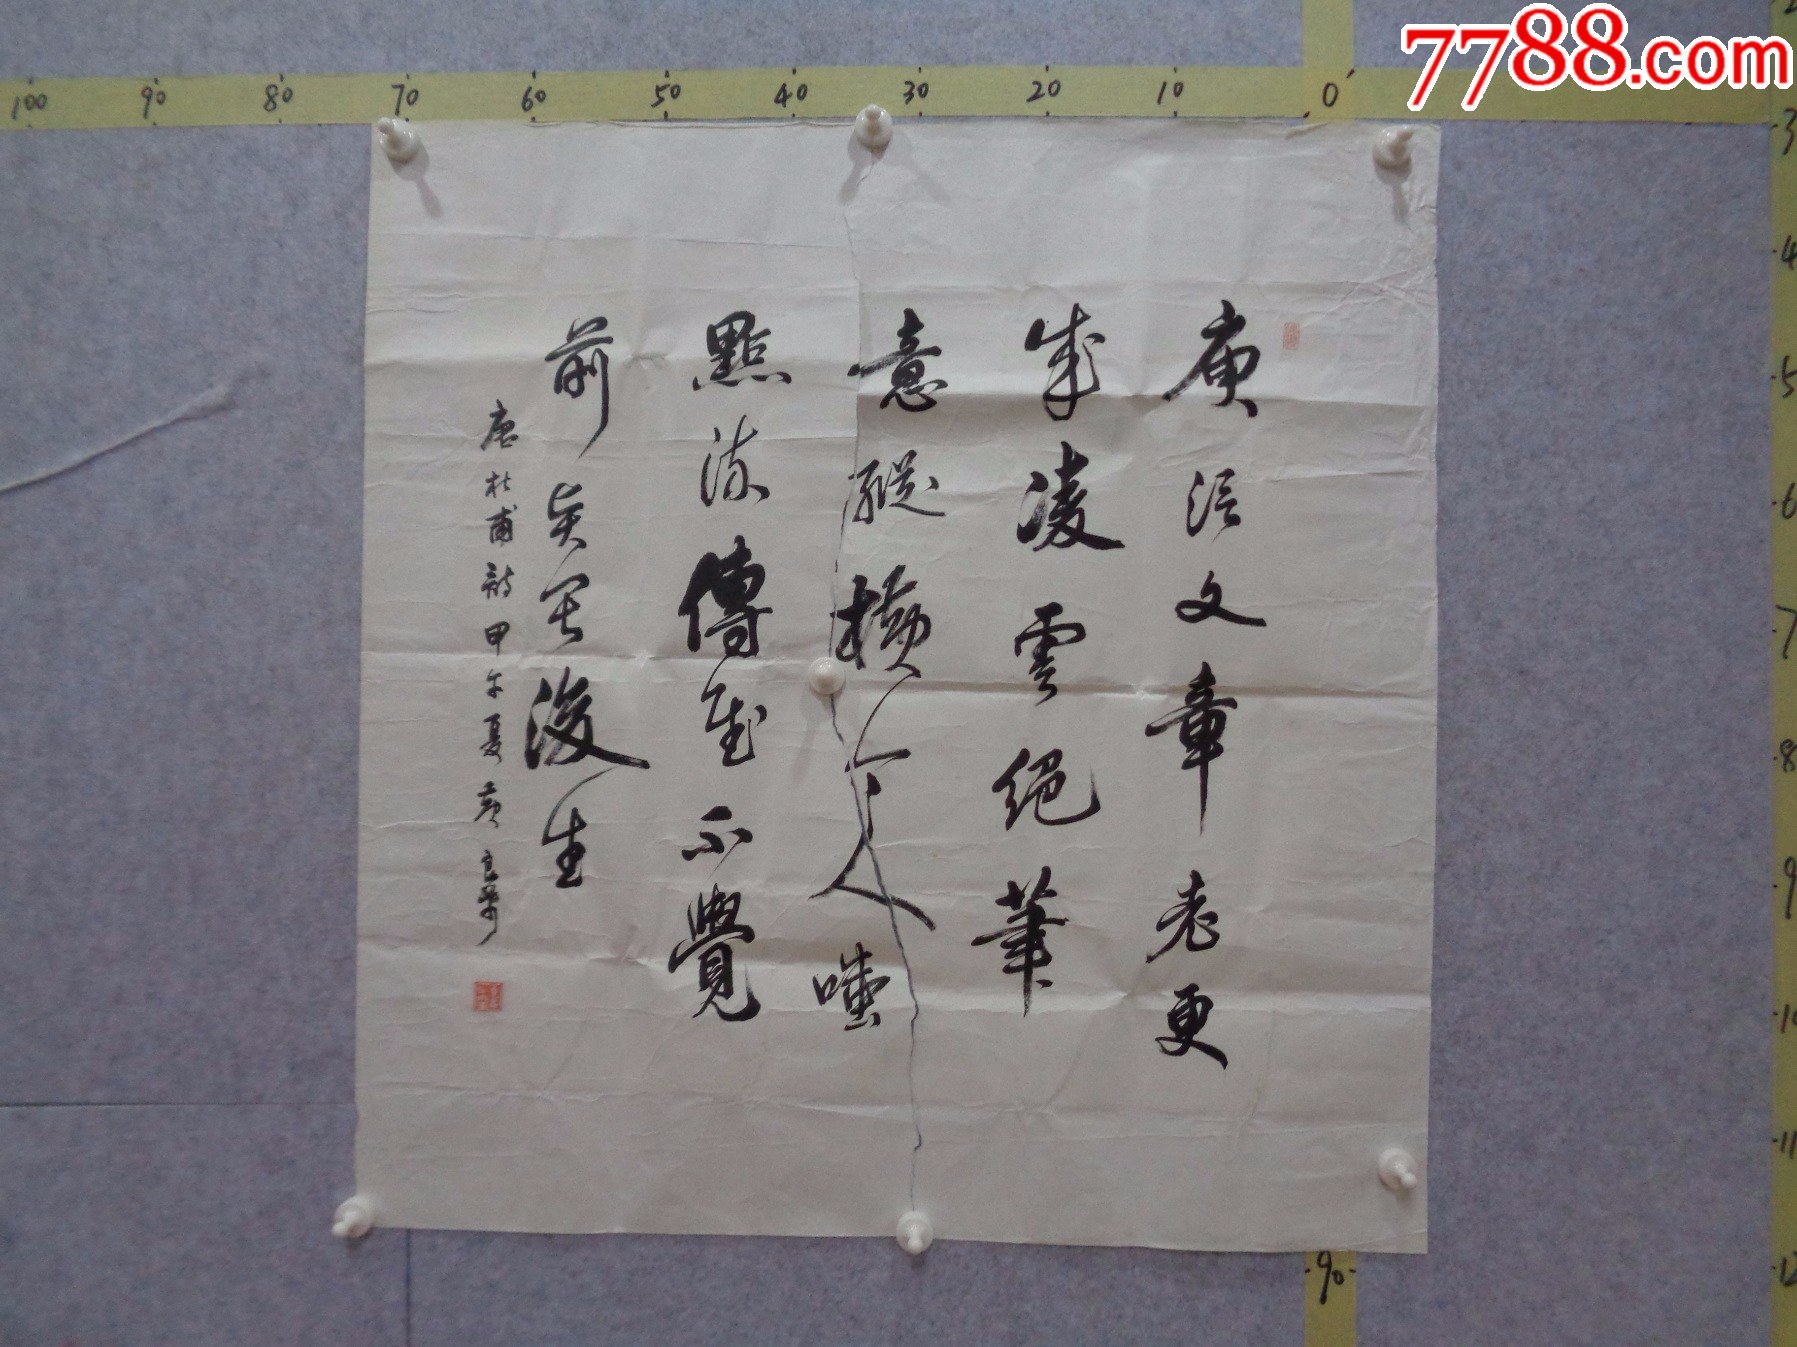 7788.com
100 90 80 70 60 50 40 30 20 10 0
庾信文章老更
成凌雲絕筆
意縱橫今人嗤
點流傳賦不覺
前賢畏後生
唐杜甫詩甲午夏黄良
3
4
5
6
7
8
9
10
11
12
90